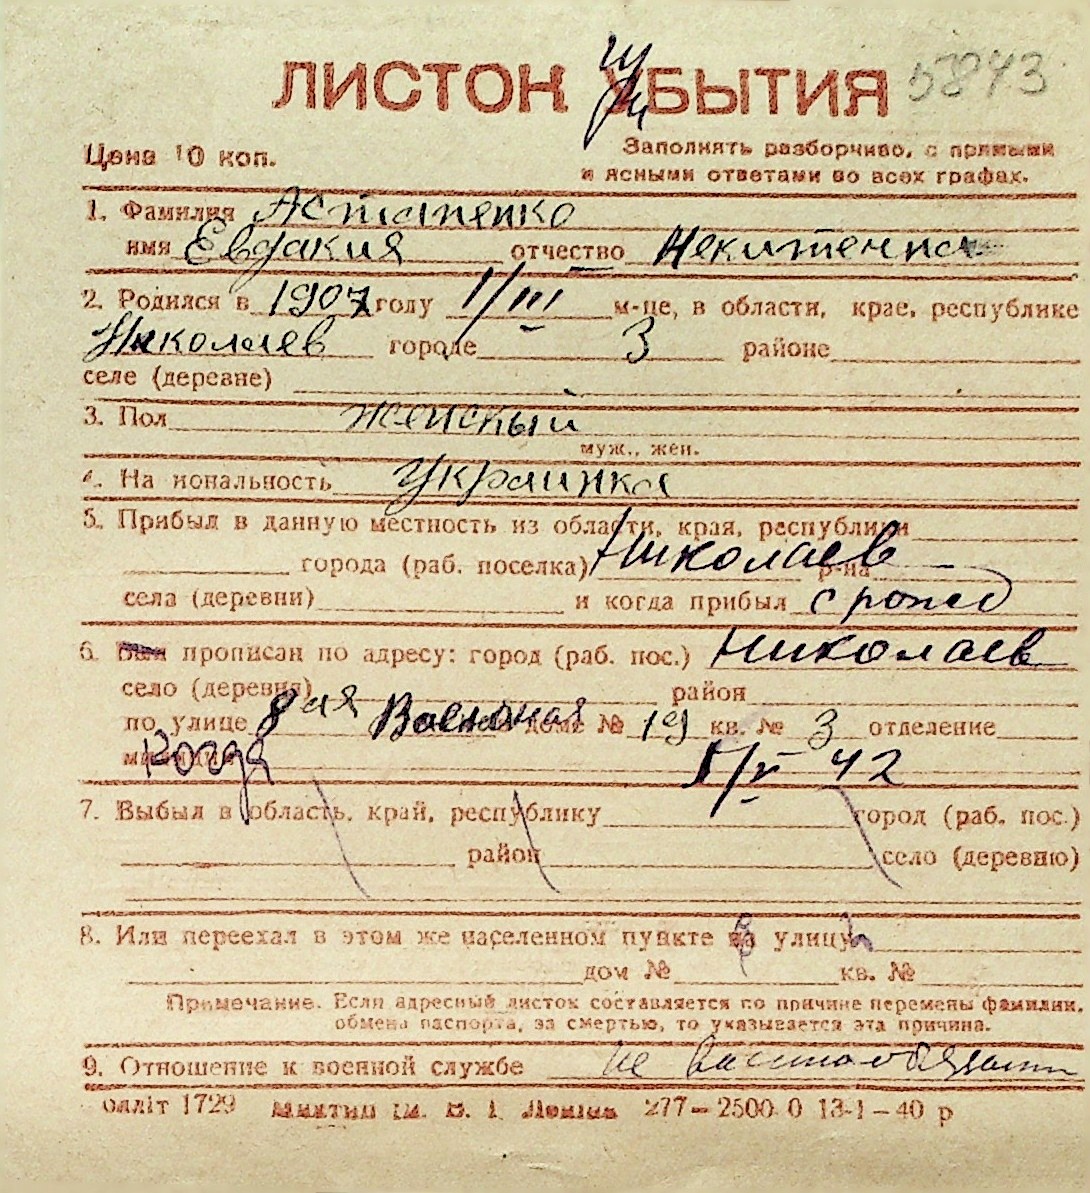 ЛИСТОК УБЫТИЯ 5843
Цена 10 коп. Заполнять разборчиво, с прямыми
и ясными ответами во всех графах.
1. Фамилия Астапенко
имя Евдакия отчество
2. Родился в 1907 году 1/III м-це, в области, крае, республике
Николаев городе 3 районе
селе (деревне)
3. Пол женский
муж., жен.
4. Национальность украинка
5. Прибыл в данную местность из области, края, республики
города (раб. поселка) Николаев р-на
села (деревни) и когда прибыл с рожд
6. Был прописан по адресу: город (раб. пос.) Николаев
село (деревня) район
по улице 8 ая Военная дом № 19 кв. № 3 отделение
милиции когда 5/V 42
7. Выбыл в область, край, республику город (раб. пос.)
район село (деревню)
8. Или переехал в этом же населенном пункте на улицу
дом № кв. №
Примечание. Если адресный листок составляется по причине перемены фамилии,
обмена паспорта, за смертью, то указывается эта причина.
9. Отношение к военной службе не
олліт 1729 ім. В. І. Леніна 277—2500 0 13-1—40 р